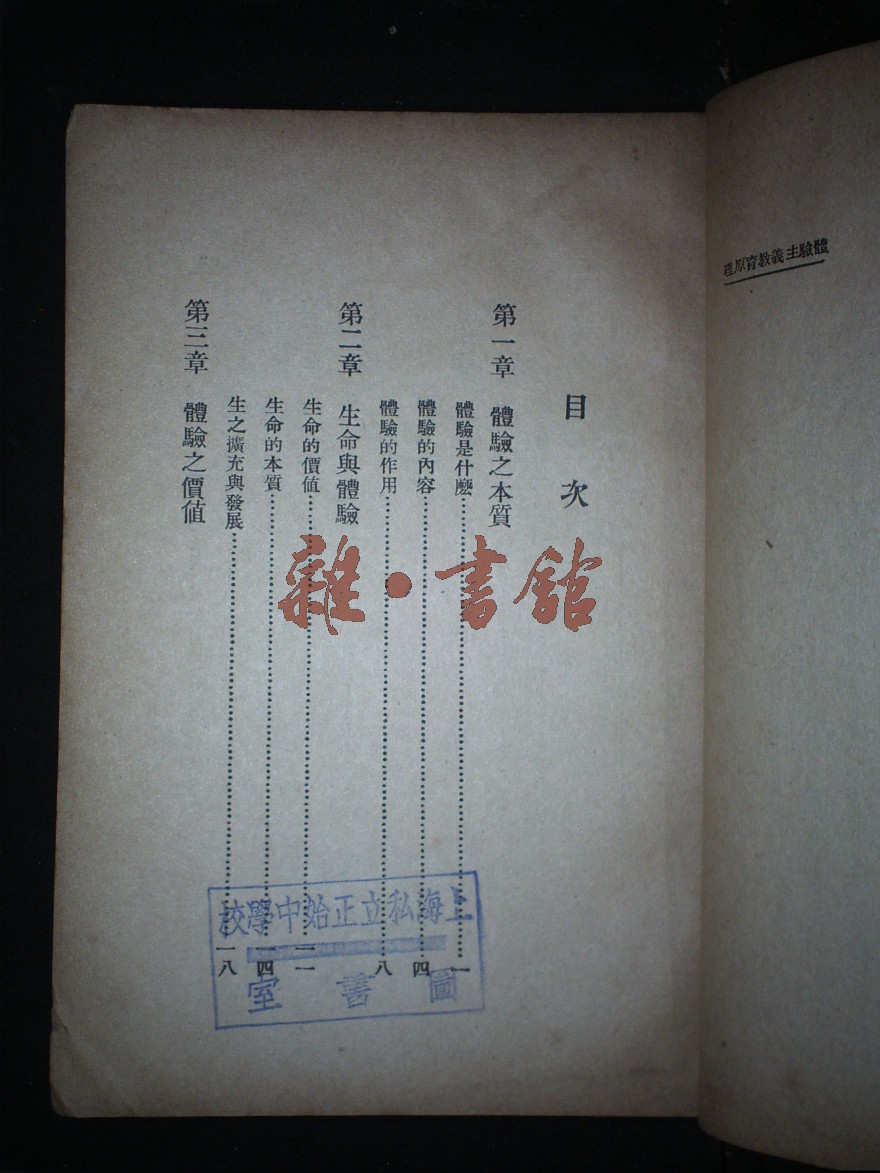 體驗主義教育原理
目次
第一章 體驗之本質
體驗是什麽……一
體驗的內容……四
體驗的作用……八
第二章 生命與體驗
生命的價值……一一
生命的本質……一四
生之擴充與發展……一八
第三章 體驗之價值
雜·書館
上海私立正始中學校
圖書室